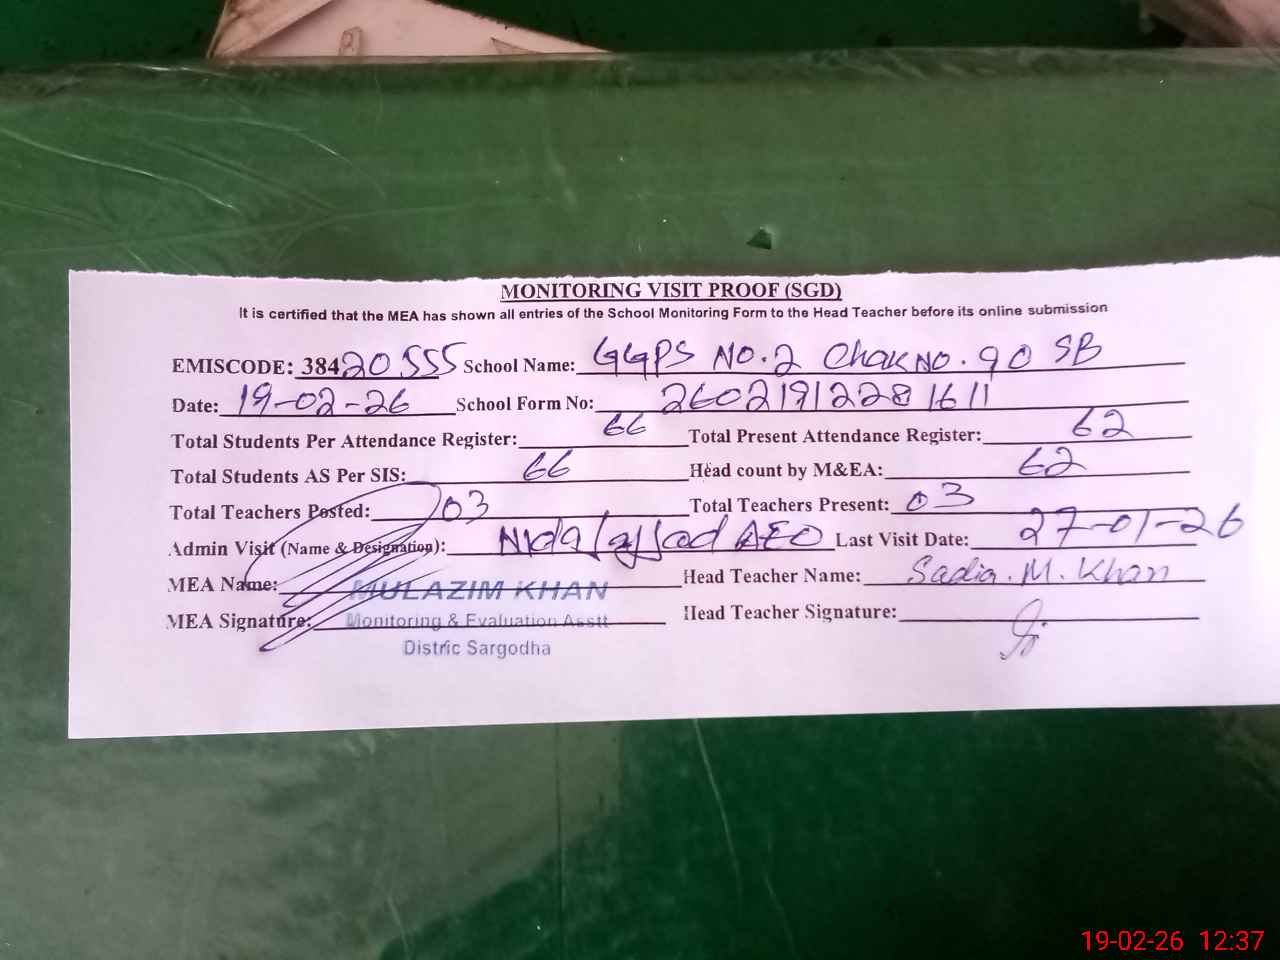 MONITORING VISIT PROOF (SGD)
It is certified that the MEA has shown all entries of the School Monitoring Form to the Head Teacher before its online submission
EMISCODE: 38420555 School Name: GGPS NO.2 Chak NO. 90 SB
Date: 19-02-26 School Form No: 26021912281611
Total Students Per Attendance Register: 66 Total Present Attendance Register: 62
Total Students AS Per SIS: 66 Head count by M&EA: 62
Total Teachers Posted: 03 Total Teachers Present: 03
Admin Visit (Name & Designation): Nida Sajjad AEO Last Visit Date: 27-01-26
MEA Name: MULAZIM KHAN Head Teacher Name: Sadia. M. Khan
MEA Signature: Monitoring & Evaluation Asstt Head Teacher Signature:
Distric Sargodha
19-02-26 12:37